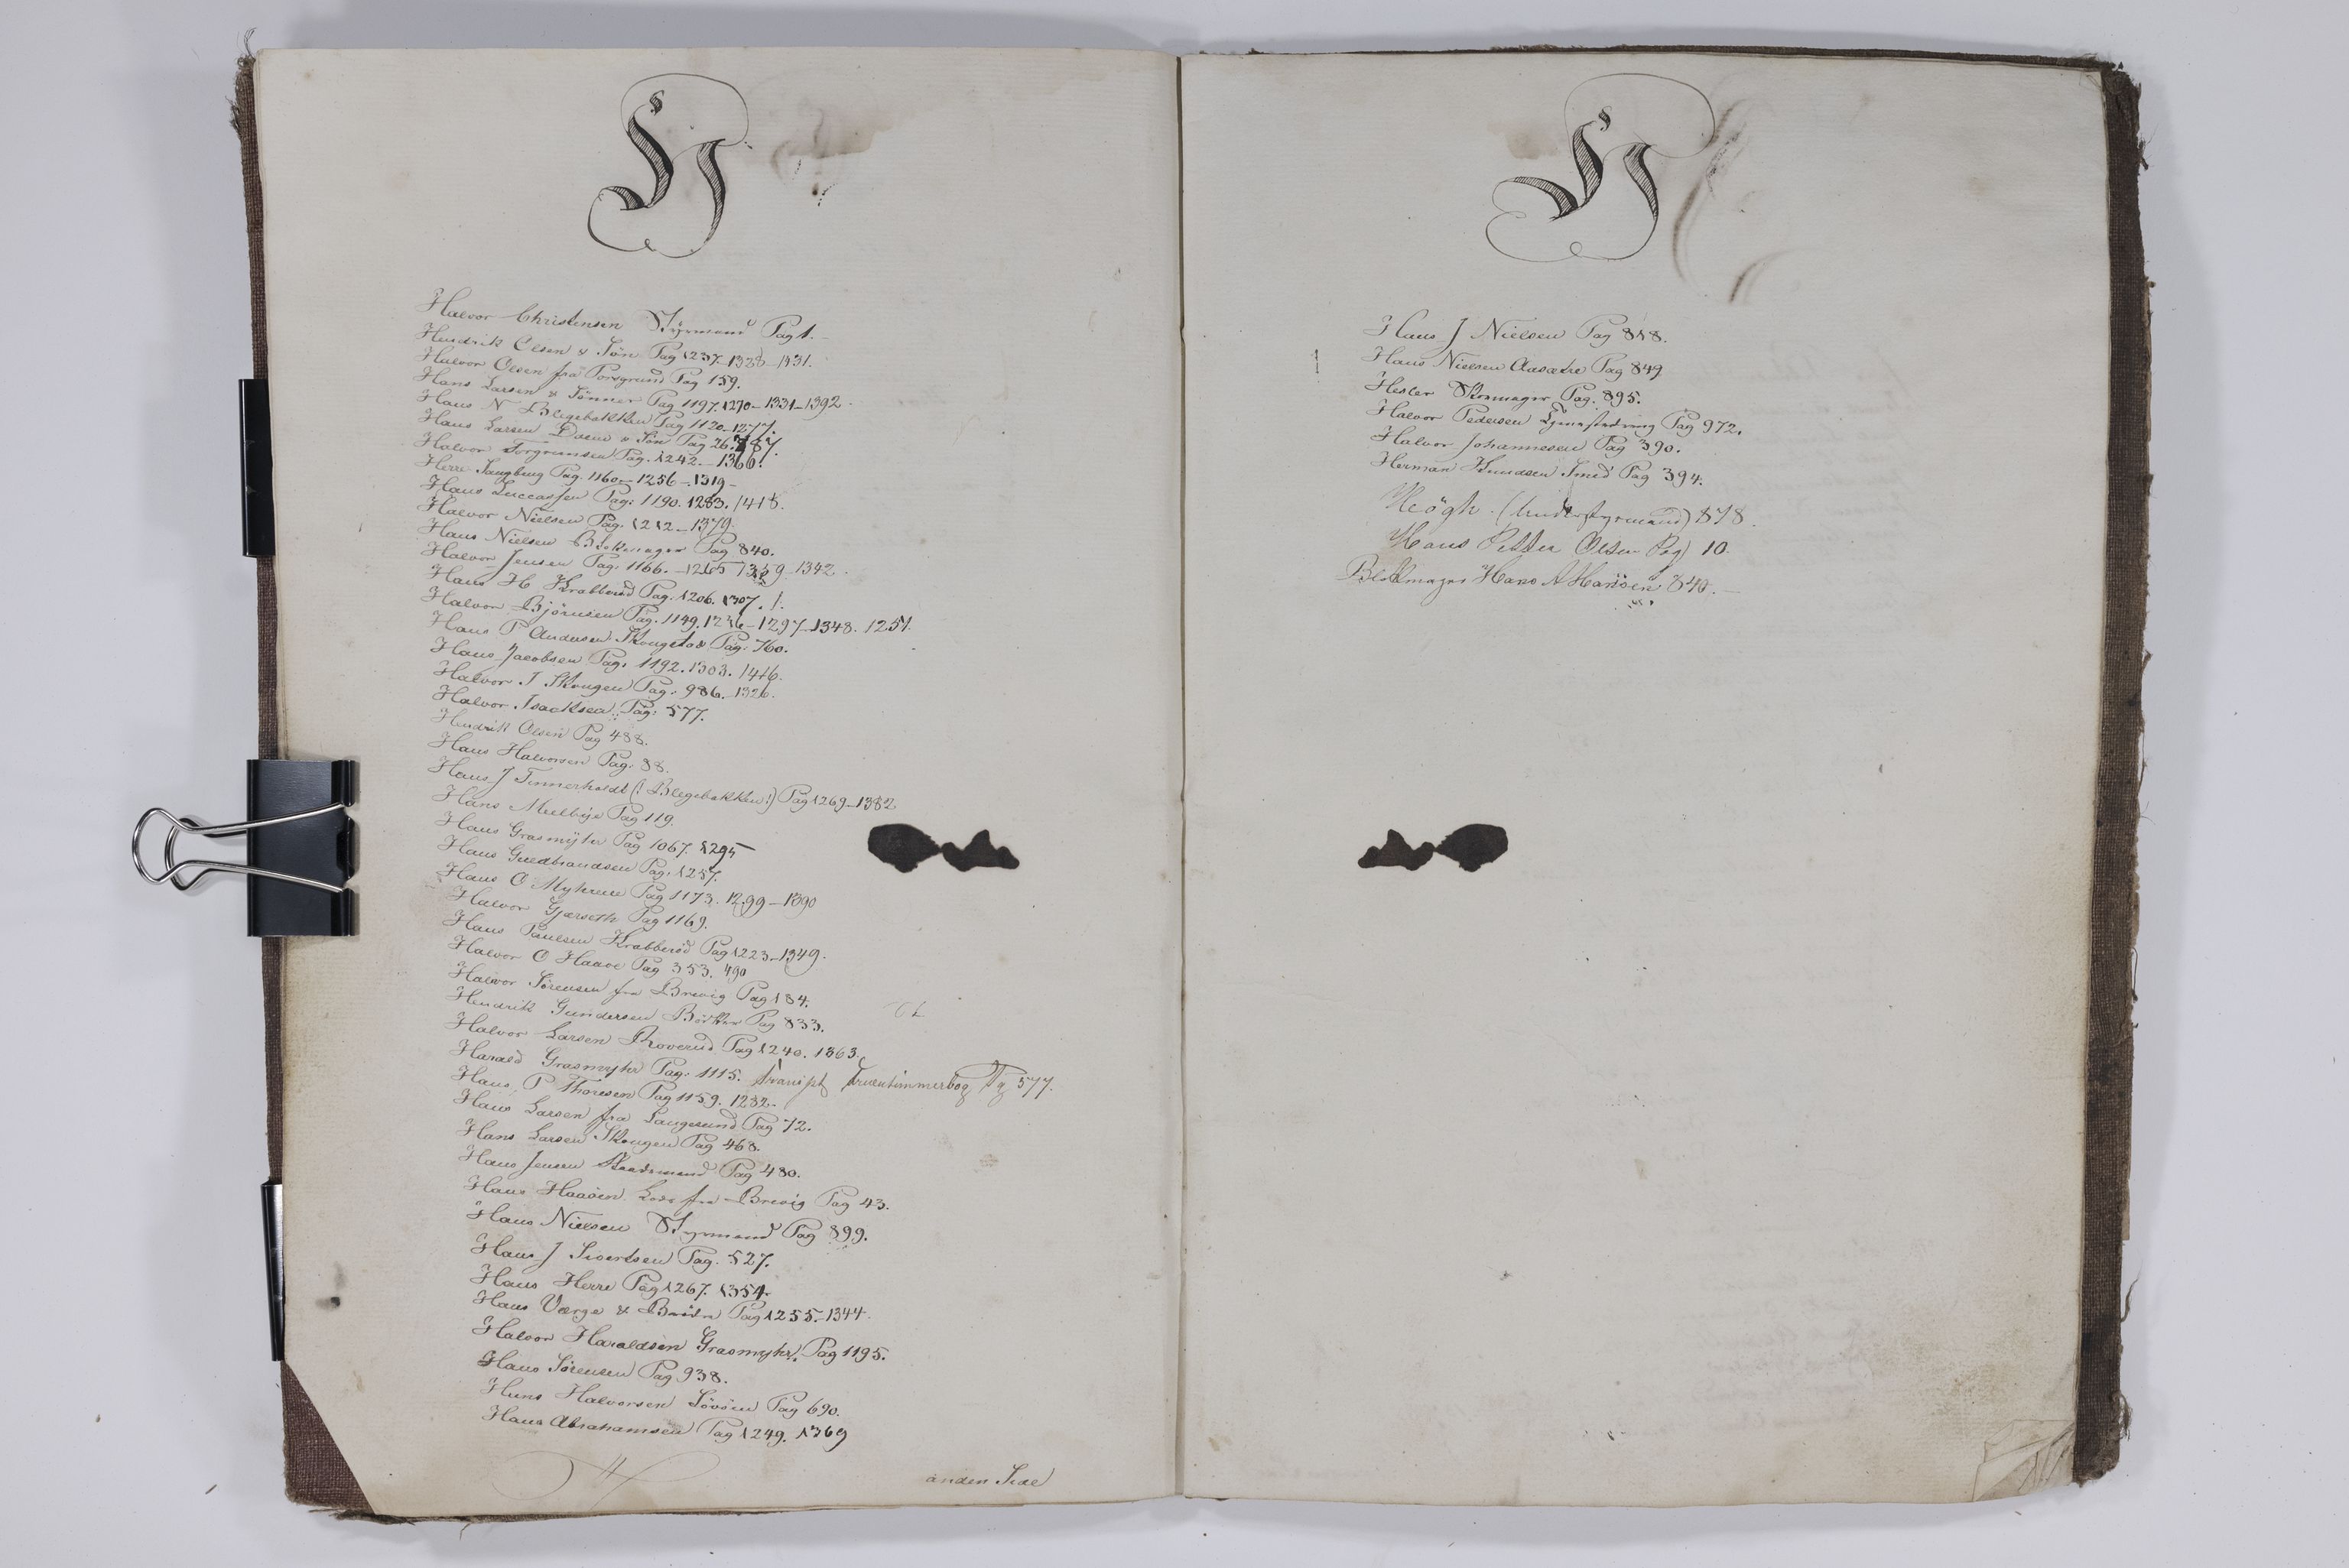 H
Halvor Christensen Styrmand Pag 1.
Hendrik Olsen & Søn Pag 1237-1328-1431.
Halvor Olsen fra Porsgrund Pag 159.
Hans Larsen & Sønner Pag 1197. 1270-1331-1392.
Hans N Blegebakken Pag 1120-1277.
Hans Larsen & Søn Pag 26. 787.
Halvor Torgrimsen Pag. 1242.-1366.
Herre Pag. 1160-1256-1319-
Hans Luccassen Pag: 1190. 1283. 1418.
Halvor Nielsen Pag. 1212-1379.
Hans Nielsen Blokmager Pag 840.
Halvor Jensen Pag: 1166.-1265 1342.
Hans H Krabberød Pag. 1206. 1307.
Halvor Bjørnsen Pag. 1149. 1236-1297-1348. 1251.
Hans P Andersen Pag: 760.
Hans Jacobsen Pag: 1192. 1303. 1416.
Halvor I Skougen Pag: 986.-1326.
Halvor Isacksen Pag: 577.
Hendrik Olsen Pag 488.
Hans Halvorsen Pag: 88.
Hans J Timmerholdt (: Blegebakken:) Pag 1269-1382
Hans Melbye Pag 119.
Hans Grasmyhr Pag 1067. 1295
Hans Guldbrandsen Pag. 1257.
Hans O Myhrene Pag 1173. 1299-1390
Halvor Gjærseth Pag 1169.
Hans Paulsen Krabberød Pag 1223-1349.
Halvor O Haave Pag 353. 490
Halvor Sørensen fra Brevig Pag 184.
Hendrik Gundersen Bødker Pag 833.
Halvor Larsen Roverud Pag 1240. 1363.
Harald Grasmyhr Pag: 1115. Pg 577.
Hans P Thoresen Pag 1159. 1282-
Hans Larsen fra Langesund Pag 72.
Hans Larsen Skougen Pag 468.
Hans Jensen Pag 480.
Hans Haasen Lods fra Brevig Pag 43.
Hans Nielsen Styrmand Pag 899.
Hans J Sivertsen Pag. 527.
Hans Herre Pag 1267. 1354.
Hans Værge & Pag 1255.-1344.
Halvor Haraldsen Grasmyhr. Pag 1195.
Hans Sørensen Pag 938.
Hans Halvorsen Pag 690.
Hans Abrahamsen Pag 1249. 1369
anden Side
H
Hans J Nielsen Pag 848.
Hans Nielsen Aasætre Pag 849
Hesler Skomager Pag. 895.
Halvor Pedersen Pag 972.
Halvor Johannesen Pag 390.
Herman Knudsen Smed Pag 394.
Høgh. (Understyrmand) 878.
Hans Petter Olsen Pag 10.
Blokmager Hans N Hansen 840.-